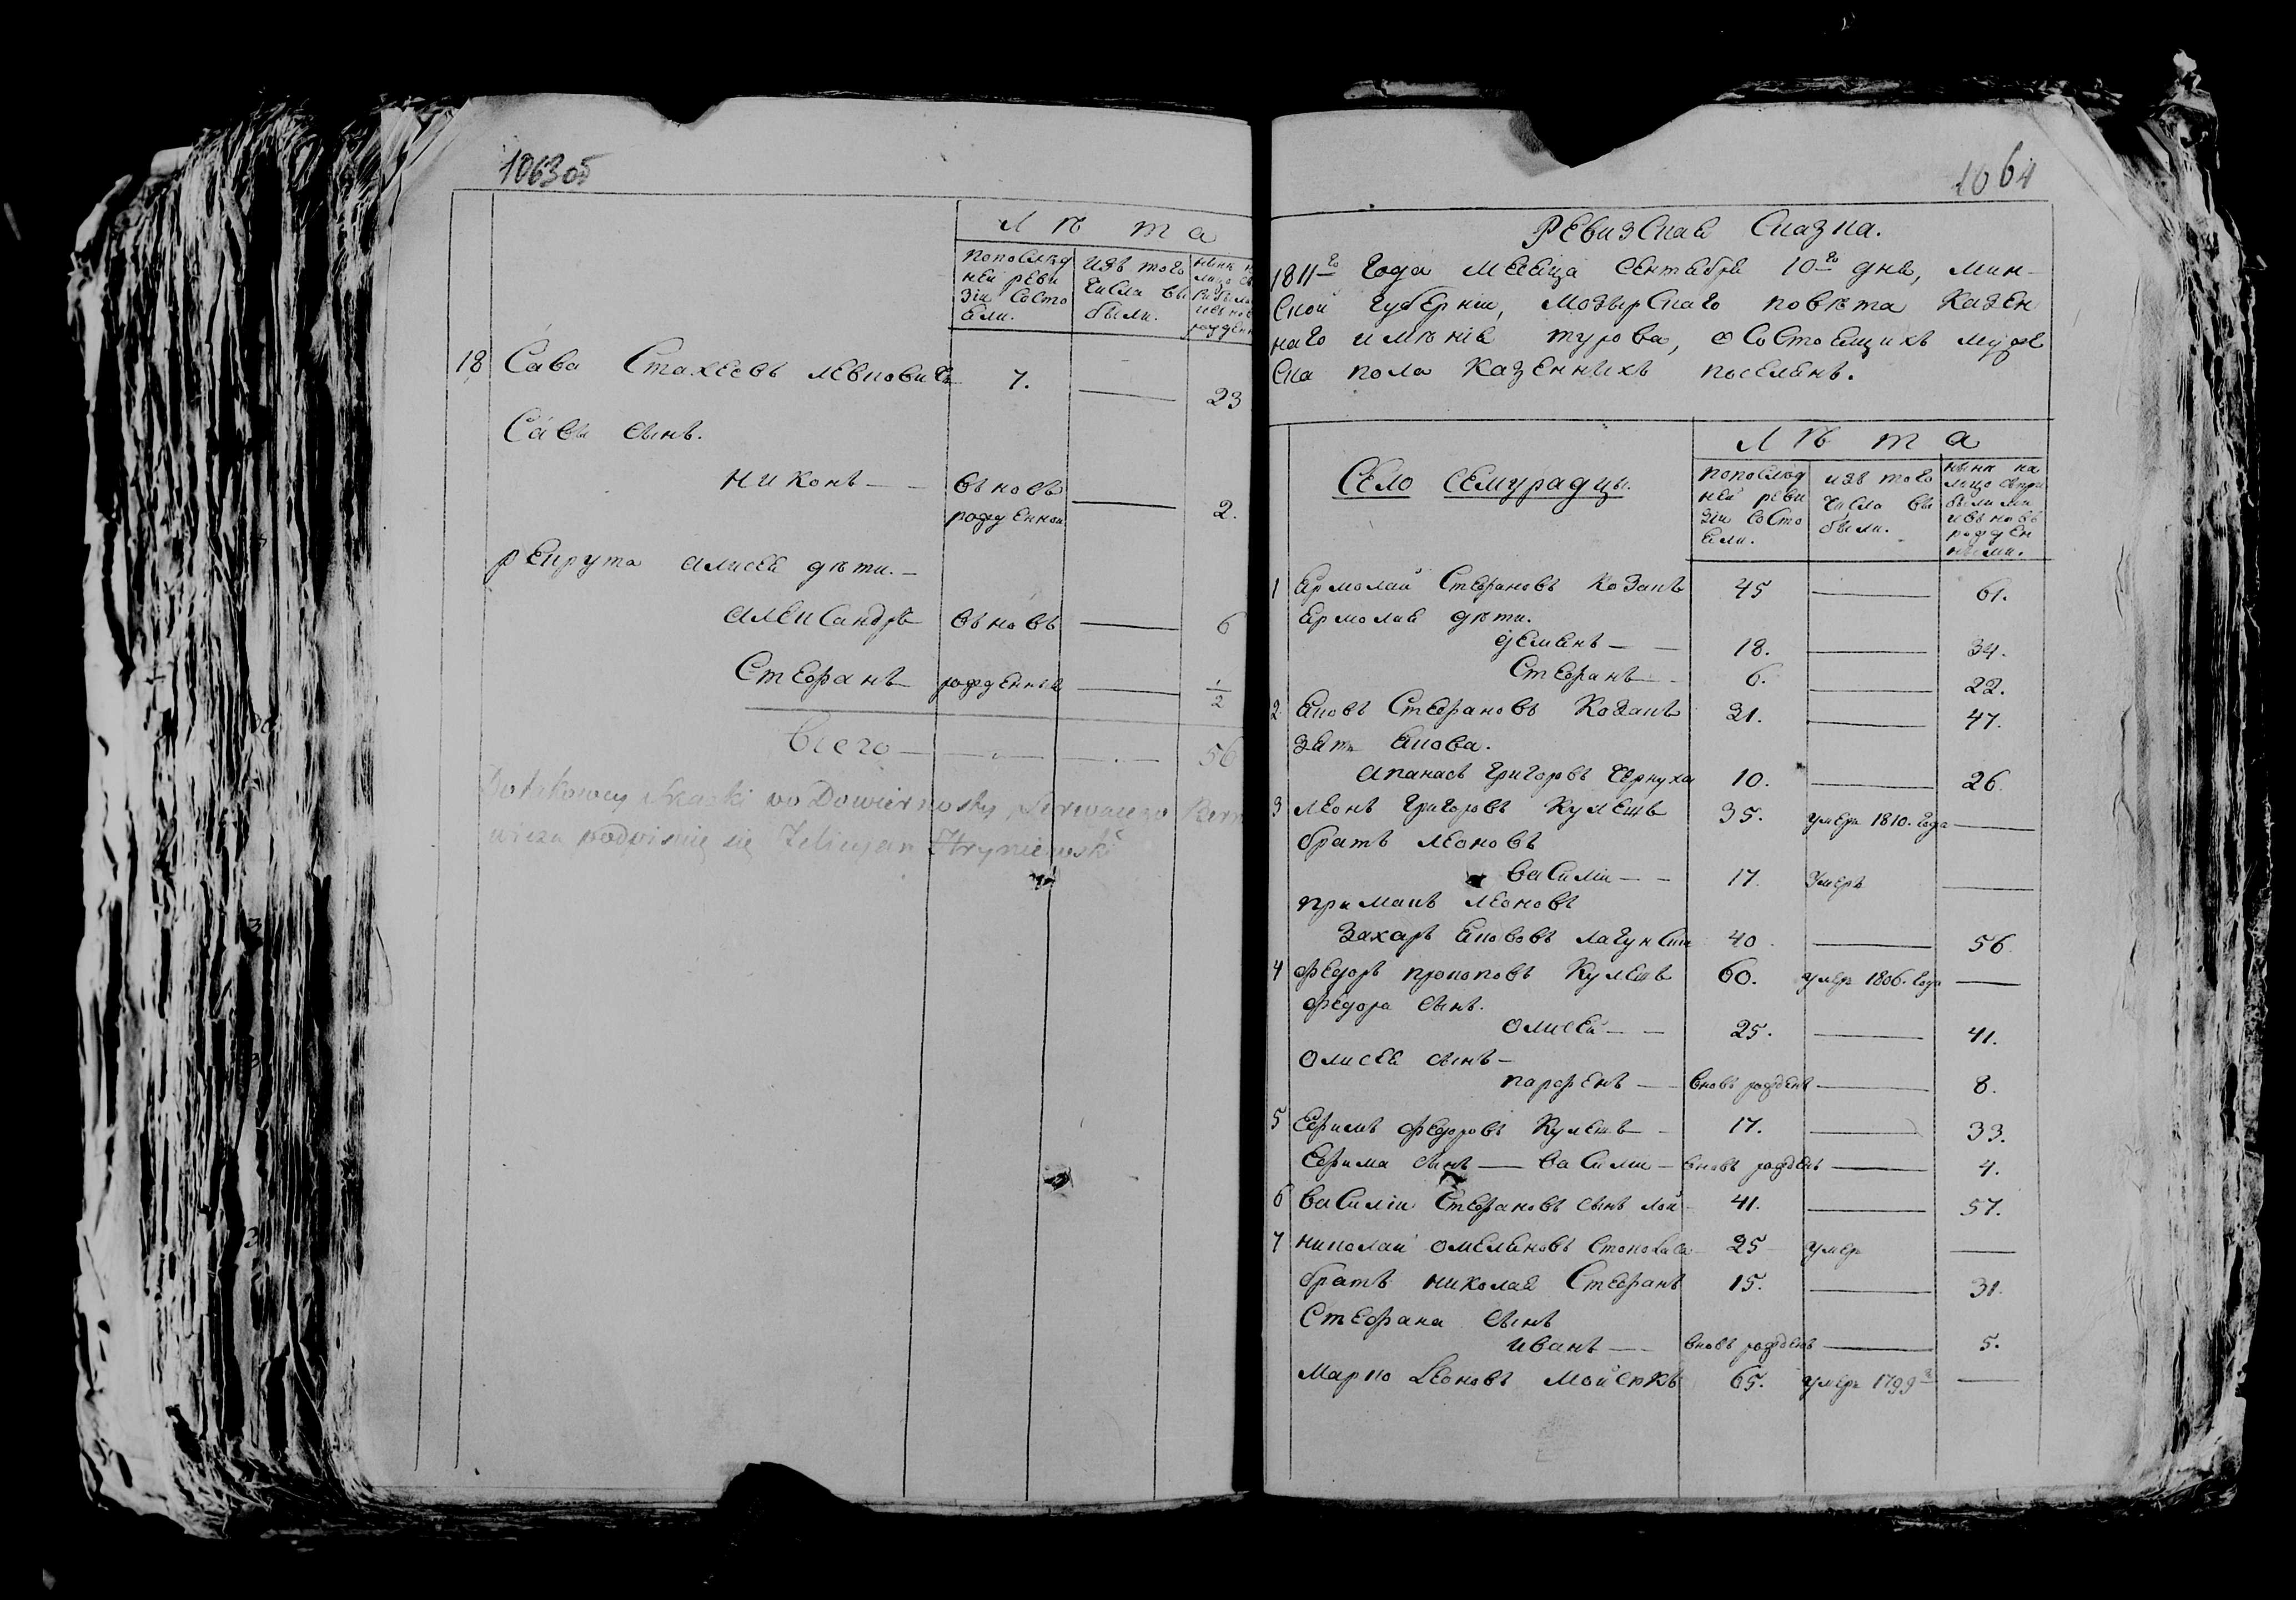 1063об
Лѣта
По послѣд
ней реви
зіи состо
яли.
изъ того
числа вы
были.
18 Сава Стахеевъ Левковичъ 7. — 23
Савы сынъ.
Никонъ — вьновь рожденной — 2.
рекрута Алисея дѣти. —
Александръ вьновь — 6
Стефанъ рожденные — 1/2
Всего — 56
podpisuię się Felicyan Hryniewski
1064
Ревизская Сказка.
1811го года месеца сентебря 10го дня, Мин-
ской губерніи, Мозырскаго повѣта казен
наго имѣнія Турова, о состоящихъ мужс
ска пола казенныхъ поселянъ.
Село Семурадцы.
Лѣта
По послѣд
ней реви
зіи состо
яли.
изъ того
числа вы
были.
нынѣ на
лицо съ при
былыми
и вьновь
рожден
ными.
1 Ермолай Стефановъ Козакъ 45 — 61.
Ермолая дѣти.
Демянъ — 18. — 34.
Стефанъ — 6. — 22.
2 Яковъ Стефановъ Козакъ 31. — 47.
зять Якова.
Апанасъ Григоровъ Чернуха 10. — 26.
3 Леонъ Григоровъ Кулешъ 35. умеръ 1810. года —
братъ Леоновъ
Василіи — 17. умеръ —
примакъ Леоновъ
Захаръ Яковъ 40. — 56.
4 Федоръ Прокоповъ Кулешъ 60. умеръ 1806. года —
Федора сынъ.
Олисей — 25. — 41.
Олисея сынъ —
Парфенъ — вновь рожденъ — 8.
5 Ефимъ Федоровъ Кулешъ — 17. — 33.
Ефима сынъ — Василіи — вновь рожденъ — 4.
6 Василіи Стефановъ сынъ 41. — 57.
7 Николай Омеляновъ 25 умеръ —
братъ Николая Стефанъ 15. — 31.
Стефана сынъ
Иванъ — вновь рожденъ — 5.
Марко Леоновъ Мойсюкъ 65. умеръ 1799 —